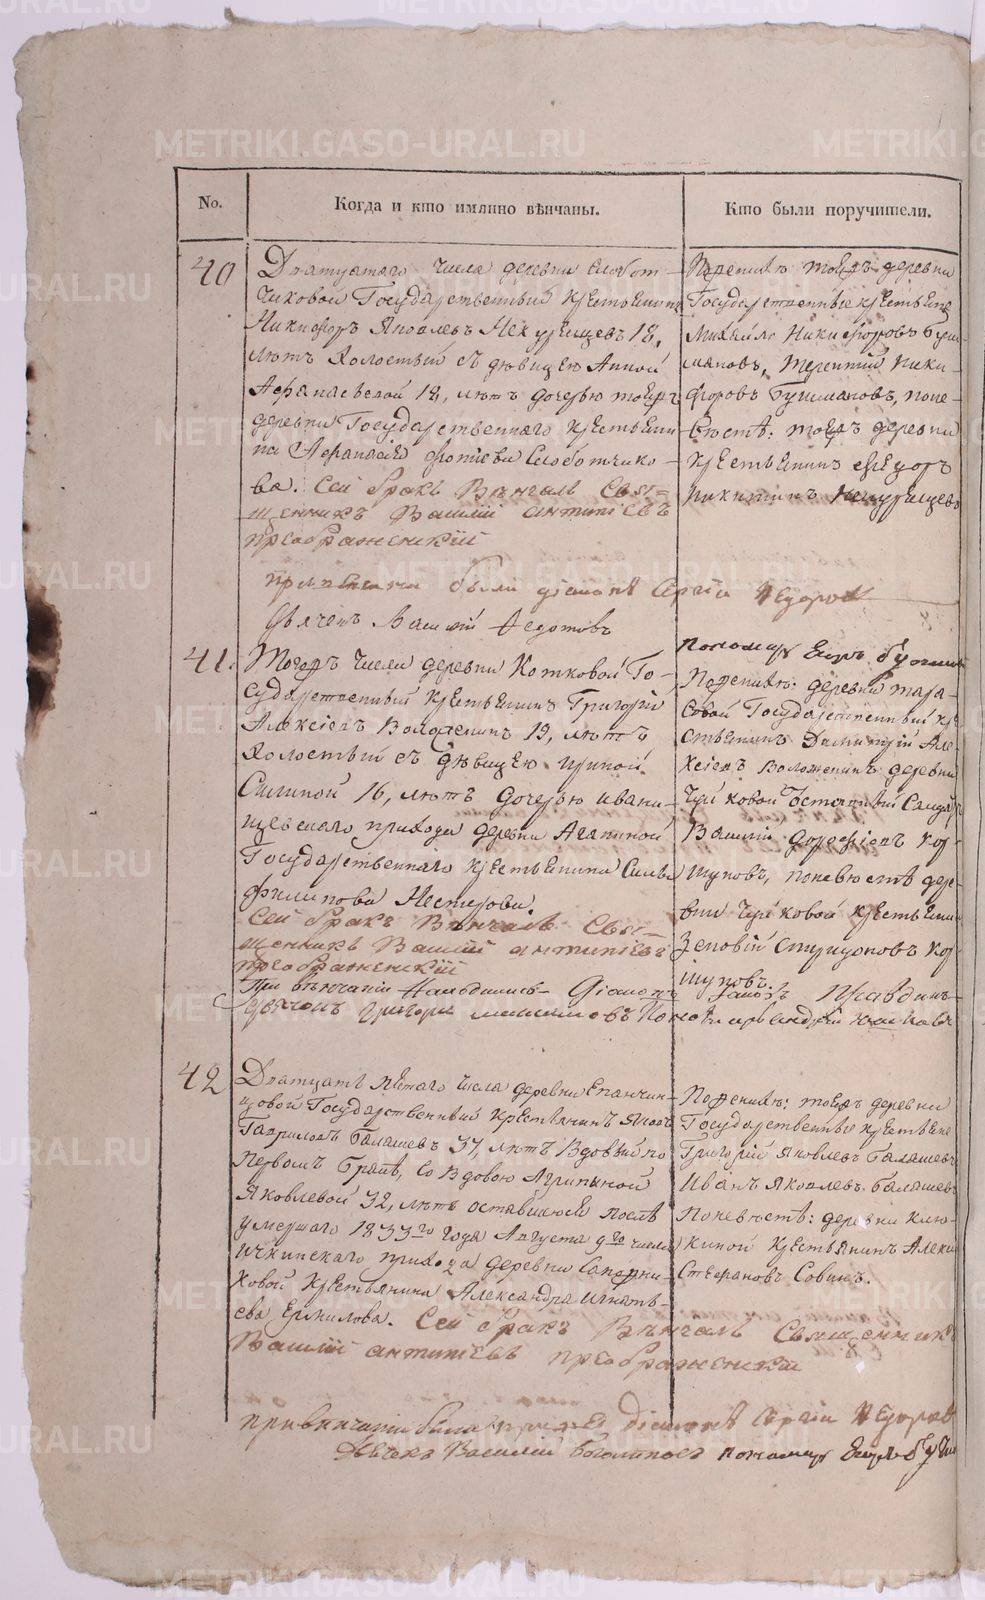 METRIKI.GASO-URAL.RU
No.
Когда и кто имянно вѣнчаны.
Кто были поручители.
40
Дватцатаго числа деревни Слобот-
чиковой Государственный крестьянинъ
Никифоръ Яковлевъ 18,
лѣтъ холостый съ дѣвицею Анной
Афанасьевой 18, лѣтъ дочерью тоежъ
деревни Государственнаго крестьяни-
на Афанасія Фотіева Слоботчико-
ва. Сей бракъ Вѣнчалъ Свя-
щенникъ Василій Антипіевъ
Преображенскій
были діаконъ Сергій
Дьячекъ Василій Федотовъ
По женихѣ тоежъ деревни
Государственные крестьяне
Михайло Никифоровъ Буш-
мановъ, Терентий Ники-
форовъ Бушмановъ, по не-
вѣстѣ: тоежъ деревни
крестьянинъ Федоръ
Никитинъ
пономарь Егоръ
41.
Тогожъ числа деревни Котковой Го-
сударственный крестьянинъ Григорій
Алексіевъ Воложенинъ 19, лѣтъ
холостый съ дѣвицею Ириной
Силиной 16, лѣтъ дочерью Ивани-
щевскаго прихода деревни Агапиной
Государственнаго крестьянина Силы
Филипова Нестерова.
Сей бракъ Вѣнчалъ Свя-
щенникъ Василій Антипіевъ
Преображенскій
При вѣнчаніи находились Діаконъ Іаковъ Правдинъ
Дьячокъ Григорій
По женихѣ: деревни Тара-
совой Государственный кре-
стьянинъ Димитрій Але-
ксіевъ Воложенинъ деревни
Чуйковой
Василій Дорофіевъ Кор-
шуновъ, по невѣстѣ дере-
вни Чуйковой крестьянинъ
Зеновій Спиридоновъ Кор-
шуновъ.
42
Дватцать пятаго числа деревни Епанчин-
цовой Государственный крестьянинъ Яковъ
Гавриловъ Балашевъ 37, лѣтъ вдовый по
первомъ бракѣ, со вдовою Агрипиной
Яковлевой 32, лѣтъ оставшеюся послѣ
умершаго 1833го года Августа 9го числа
Ичкинскаго прихода деревни Сапожни-
ковой крестьянина Александра Игнать-
ева Ермилова. Сей бракъ Вѣнчалъ Священникъ
Василій Антипіевъ Преображенскій
По женихѣ: тоежъ деревни
Государственные крестьяне
Григорій Яковлевъ Балашевъ
Иванъ Яковлевъ Балашевъ
По невѣстѣ: деревни Клю-
киной крестьянинъ Алекси
Стефановъ Совинъ.
діаконъ Сергій
Дьячекъ Василій пономарь Егоръ